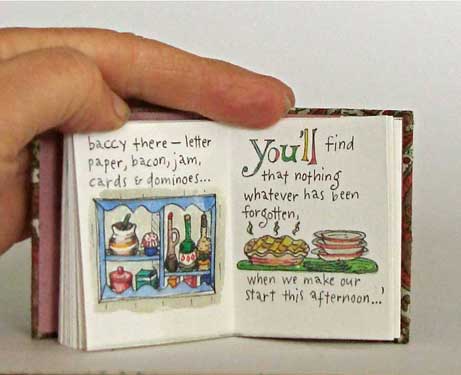 baccy there — letter
paper, bacon, jam,
cards & dominoes...
You'll find
that nothing
whatever has been
forgotten,
when we make our
start this afternoon...'